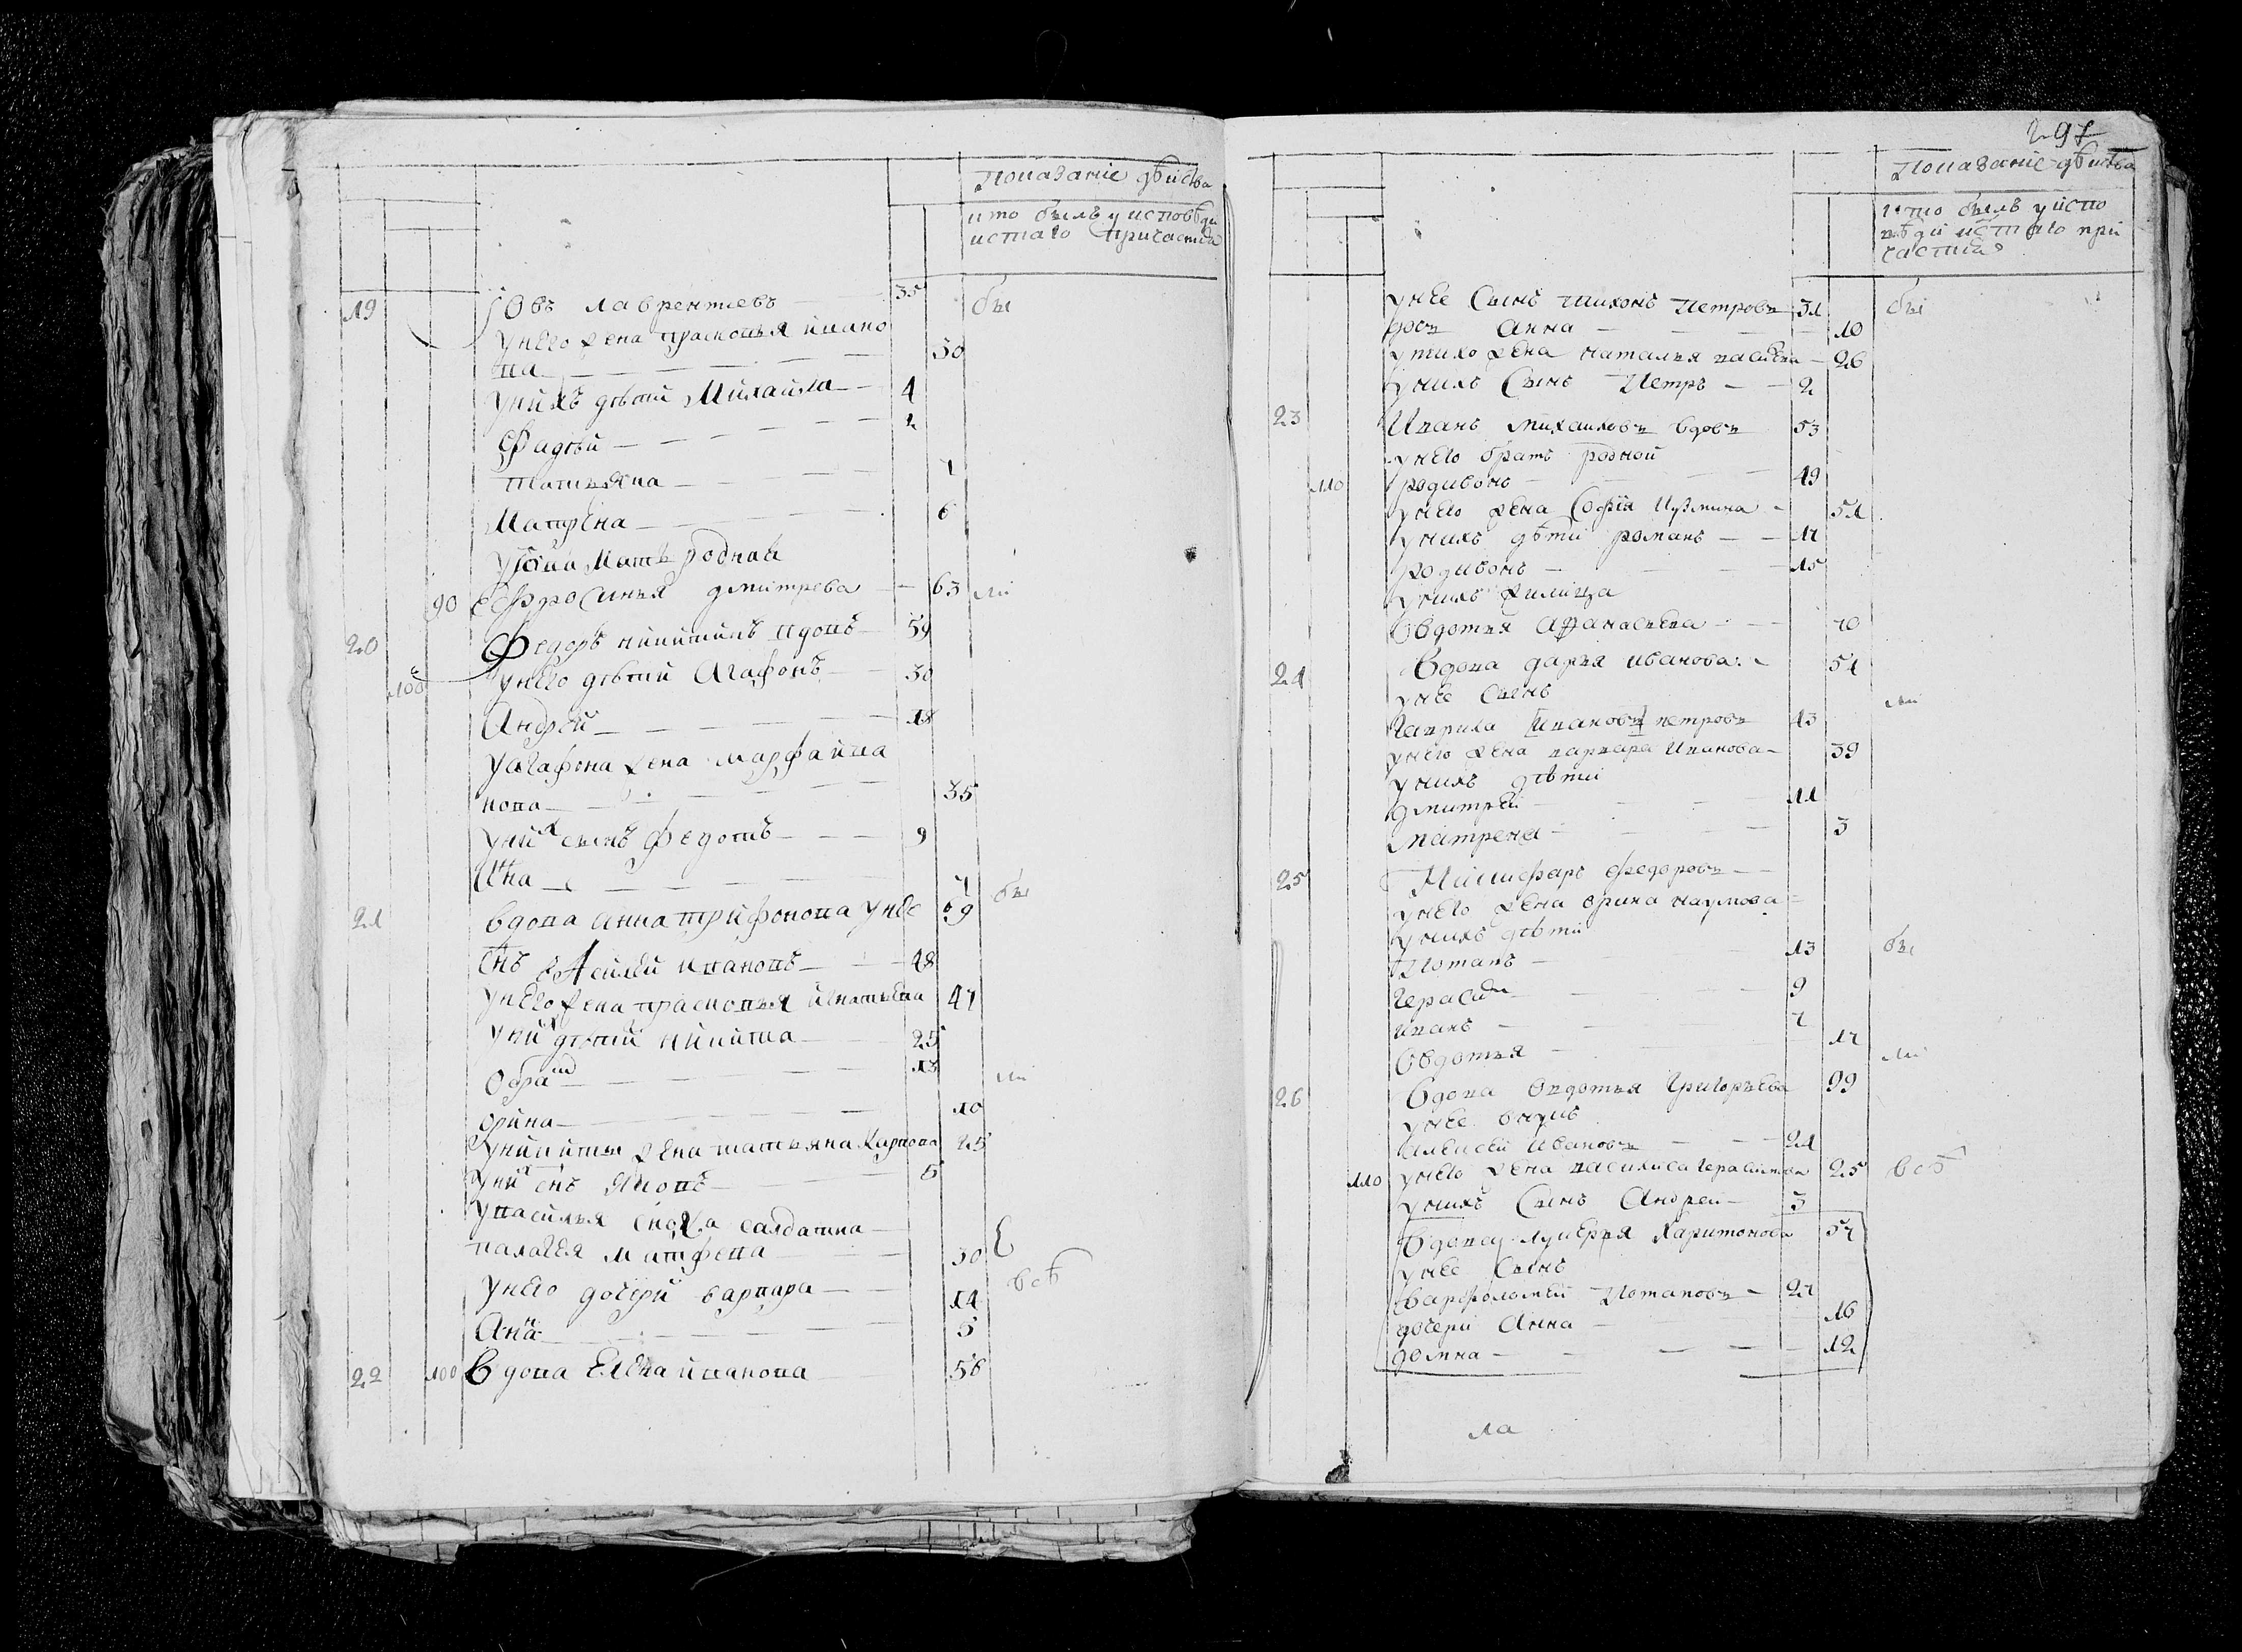 показание действа
кто былъ у исповеди
и стаго причастия
19 Іовъ лаврентиевъ — 35 бы
у него жена прасковья ивано
ва — 30
у нихъ дѣтй Михайла — 4
Фадѣй — 2
татьяна — 7
Матрена — 6
у Іова мать родная
90 ефросинья дмитрева — 63 ли
20 Федоръ никитинъ вдовъ — 59
100 у него дѣтй Агафонъ — 30
Андрѣй — 18
у агафона жена марфа ива
нова — 35
у них сынъ федотъ — 9
Анна — 7 бы
21 вдова анна трифонова у нее 69
снъ василей ивановъ — 48
у него жена прасковья игнатьева 47
у них дѣтй никита — 25
—13 ли
орина — 10
у никиты жена татьяна карпова 25
у них снъ яковъ — 5
у василья сноха салдатка
палагея матфева — 30
у него дочерй варвара — 14 всѣ
Анна — 5
22 100 вдова Елена иванова 56
297
показание дѣиства
кто былъ у испо
вѣди и стаго при
частия
у нее сынъ тихонъ петровъ 31 бы
дочь анна — 10
у тихо жена наталья васильева — 26
у нихъ сынъ петръ — 2
23 Иванъ михаиловъ вдовъ 53
у него братъ родной
110 родивонъ — 49
у него жена софія кузмина — 51
у нихъ дѣти романъ — 17
родивонъ — 15
у нихъ жилица
овдотья афанасьева — 70
24 вдова дарья иванова — 51
у нее сынъ ли
гаврила [ивановъ] петровъ 43
у него жена варвара иванова — 39
у нихъ дѣти
дмитрей — 11
матрена — 3
25 Никифаръ федоровъ —
у него жена орина наумова —
у нихъ дѣти
потапъ — 13 бы
герасим — 9
иванъ — 7
овдотья — 17 ли
26 вдова овдотья григорьева 99
у нее внукъ
алексей ивановъ — 24
110 у него жена василиса герасимова 25 всѣ
у нихъ сынъ андрей — 3
вдова лукерья харитонова 57
у нее сынъ
варфоломей потаповъ — 27
дочери анна — 16
домна — 12
ла